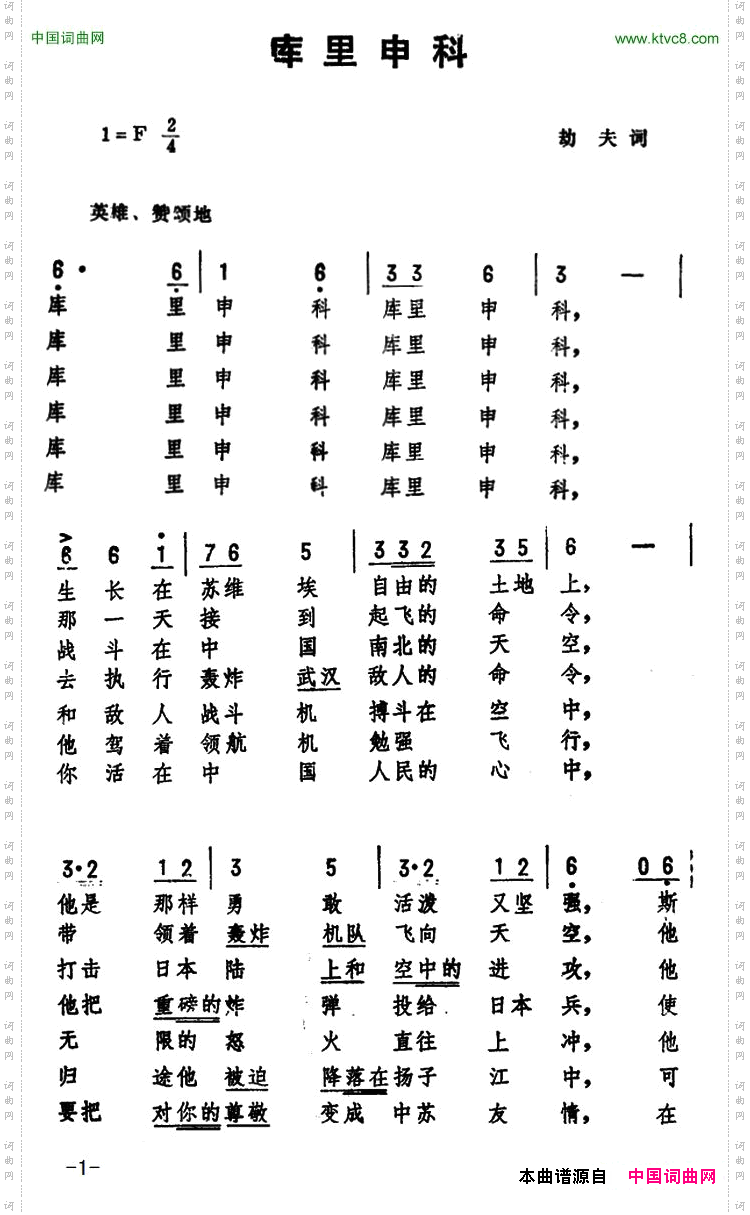 中国词曲网 库里申科 www.ktvc8.com
1=F 2/4 劫夫 词
英雄、赞颂地
6· 6 | 1 6 | 3 3 6 | 3 — |
库 里 申 科 库里 申 科，
库 里 申 科 库里 申 科，
库 里 申 科 库里 申 科，
库 里 申 科 库里 申 科，
库 里 申 科 库里 申 科，
库 里 申 科 库里 申 科，
6 6 1 | 7 6 5 | 3 3 2 3 5 | 6 — |
生 长 在 苏维 埃 自由的 土地 上，
那 一 天 接 到 起飞的 命 令，
战 斗 在 中 国 南北的 天 空，
去 执 行 轰炸 武汉 敌人的 命 令，
和 敌 人 战斗 机 搏斗在 空 中，
他 驾 着 领航 机 勉强 飞 行，
你 活 在 中 国 人民的 心 中，
3·2 1 2 | 3 5 | 3·2 1 2 | 6 0 6
他是 那样 勇 敢 活泼 又坚 强， 斯
带 领着 轰炸 机队 飞向 天 空， 他
打击 日本 陆 上和 空中的 进 攻， 他
他把 重磅的 炸 弹 投给 日本 兵， 使
无 限的 怒 火 直往 上 冲， 他
归 途他 被迫 降落在 扬子 江 中， 可
要把 对你的 尊敬 变成 中苏 友 情， 在
-1- 本曲谱源自 中国词曲网
词曲网